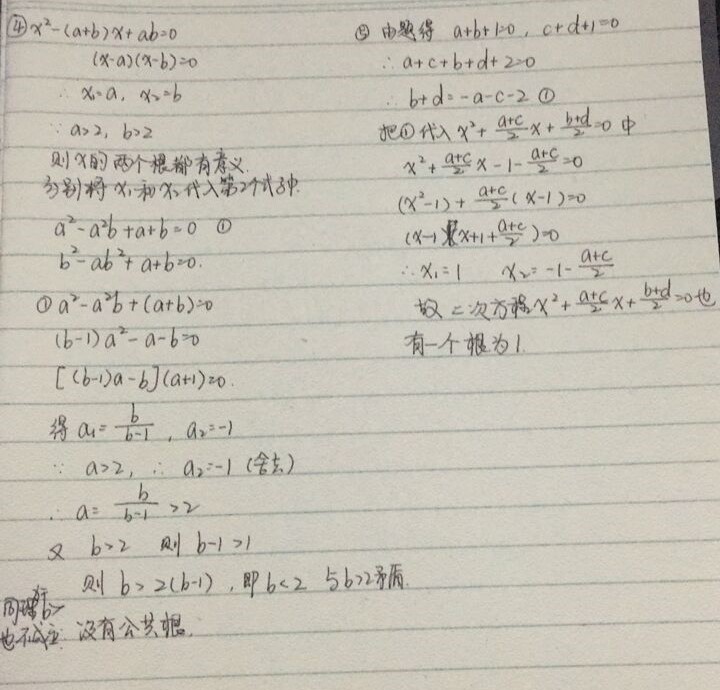 ④ x²-(a+b)x+ab=0
(x-a)(x-b)=0
∴ x₁=a, x₂=b
∵ a>2, b>2
则x的两个根都有意义.
分别将x₁和x₂代入第2个式子中.
a²-a²b+a+b=0 ①
b²-ab²+a+b=0.
① a²-a²b+(a+b)=0
(b-1)a²-a-b=0
[(b-1)a-b](a+1)=0.
得 a₁=b/(b-1), a₂=-1
∵ a>2, ∴ a₂=-1 (舍去)
∴ a=b/(b-1)>2
又 b>2 则 b-1>1
则 b>2(b-1), 即b<2 与b>2矛盾.
同理
也不成立 没有公共根.
⑤ 由题得 a+b+1=0, c+d+1=0
∴ a+c+b+d+2=0
∴ b+d=-a-c-2 ①
把①代入 x²+(a+c)/2 x+(b+d)/2=0 中
x²+(a+c)/2 x-1-(a+c)/2=0
(x²-1)+(a+c)/2 (x-1)=0
(x-1)(x+1+(a+c)/2)=0
∴ x₁=1 x₂=-1-(a+c)/2
故二次方程x²+(a+c)/2 x+(b+d)/2=0也
有一个根为1.